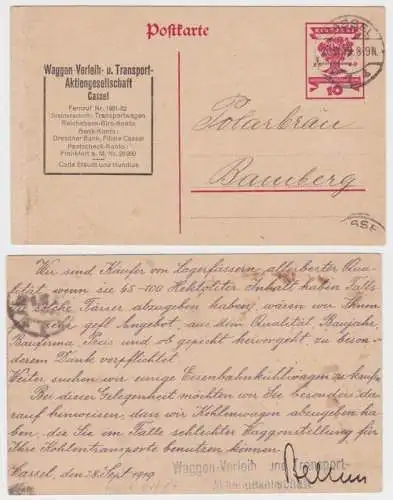 Postkarte
Waggon Verleih- u. Transport-
Aktiengesellschaft
Cassel
Fernruf Nr. 1881-82
Transportwagen
Reichsbank-Giro-Konto
Bank-Konto:
Dresdner Bank, Filiale Cassel
Postscheck-Konto:
Frankfurt a. M. Nr.
Code Staudt und Hundius
10
Polarbräu
Bamberg
Wir sind Käufer von Lagerfässern, allerbester Qua-
lität, wenn sie 45-100 Hektoliter Inhalt haben. Falls
solche Fässer abzugeben haben, wären wir Ihnen
für gefl. Angebot, aus dem Qualität, Baujahr,
Baufirma, Preis und hervorgeht, zu beson-
derem Dank verpflichtet.
Weiter suchen wir einige Eisenbahnkühlwagen zu kaufen.
Bei dieser Gelegenheit möchten wir Sie besonders dar
auf hinweisen, dass wir Kohlenwagen abzugeben ha-
ben, die Sie im Falle schlechter Waggonstellung für
Ihre Kohlentransporte benutzen können.
Cassel, den 28. Sept. 1919
Waggon-Verleih- und Transport-
Aktiengesellschaft